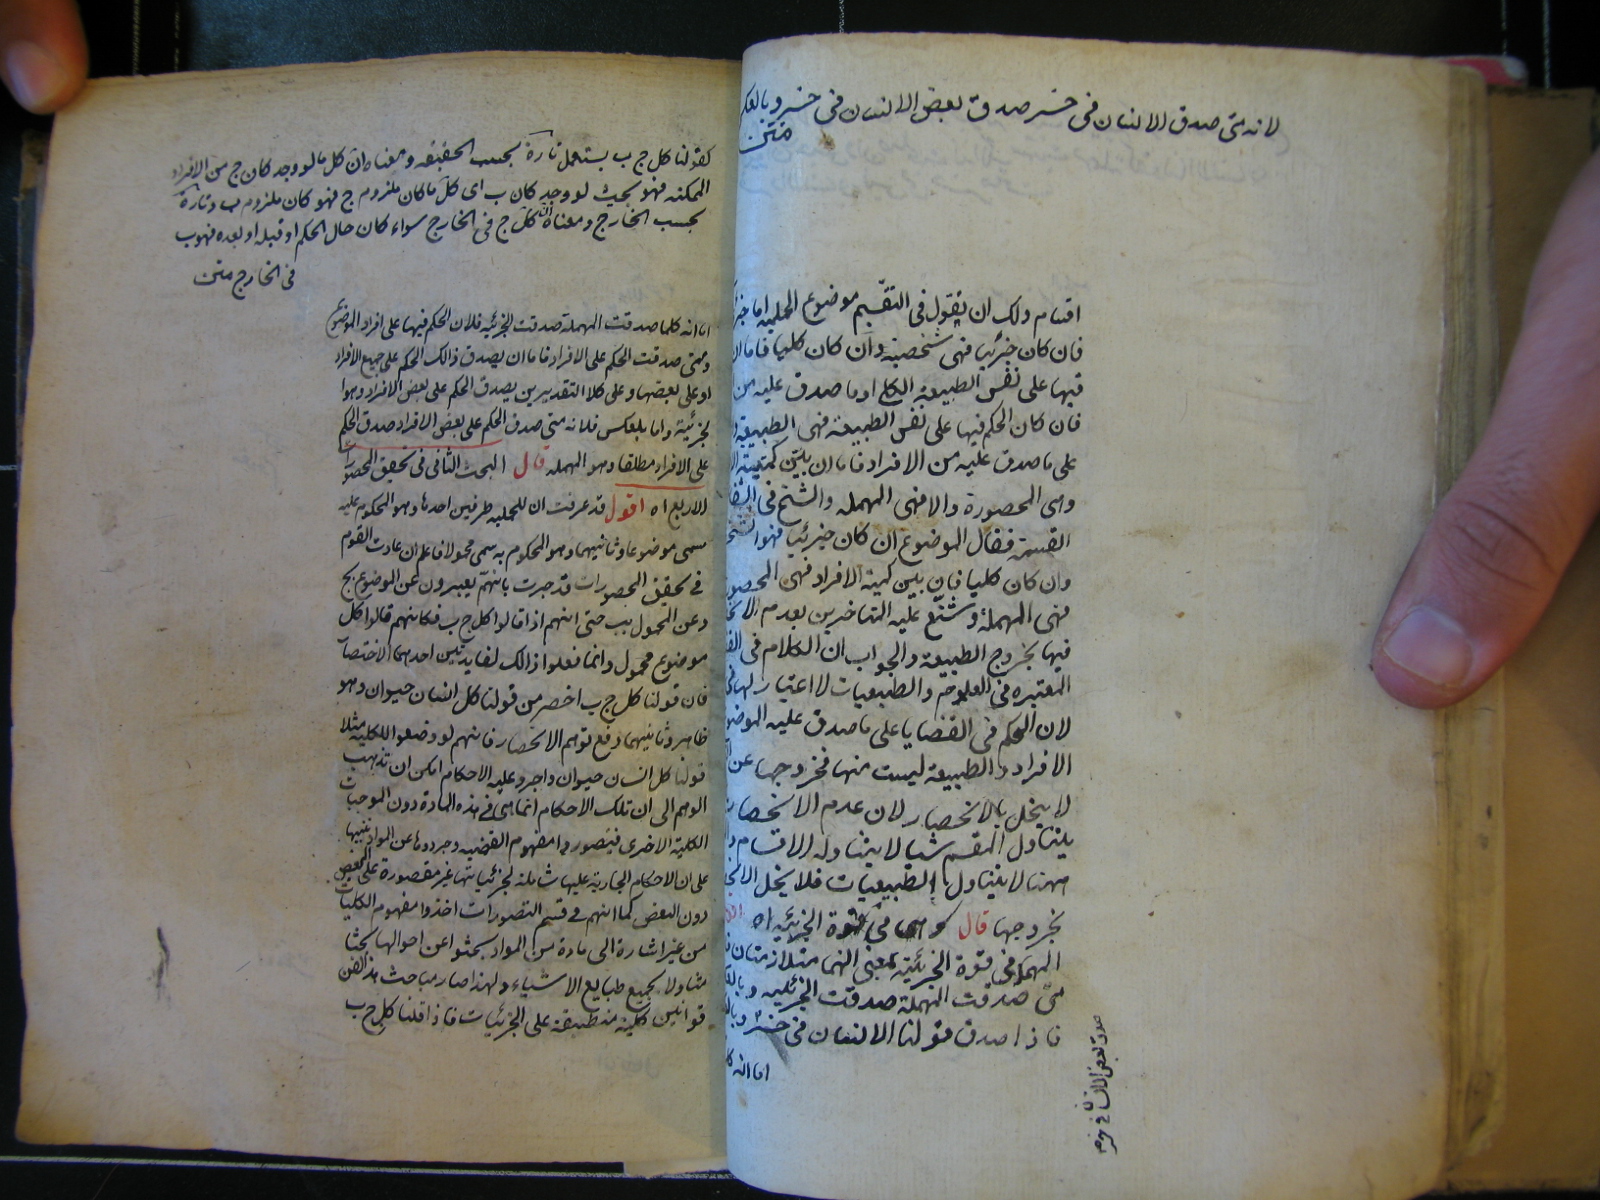 لانه متى صدق الانسان فى خسر صدق بعض الانسان فى خسر وبالعكس
متن
اقسام ولك ان تقول فى التقسيم موضوع الحملية اما جزئى
فان كان جزئيا فهى شخصية وان كان كليا فاما ان
فيها على نفس الطبيعة الكلى او ما صدق عليه من
فان كان الحكم فيها على نفس الطبيعة فهى الطبيعية
على ما صدق عليه من الافراد فاما ان يبين كمية
وهى المحصورة والا فهى المهملة والشيخ فى الشفا
القسمة فقال الموضوع ان كان جزئيا فهو
وان كان كليا فان بين كمية الافراد فهى المحصورة
فهى المهملة وشنع عليه المتاخرين بعدم الانحصار
فيها بخروج الطبيعية والجواب ان الكلام فى
المعتبره فى العلوم والطبيعيات لا اعتبار لها
لان الحكم فى القضايا على ما صدق عليه الموضوع
الافراد والطبيعية ليست منها فخروجها عن
لا يخل بالانحصار لان عدم الانحصار
يتناول المقسم شيا لا يتناوله الاقسام
ههنا لا يتناول الطبيعيات فلا يخل
بخروجها قال وهى فى قوة الجزئيه اه
المهملة فى قوة الجزئية بمعنى انهما متلازمتان
متى صدقت المهملة صدقت الجزئيه
فاذا صدق قولنا الانسان فى خسر
صدق بعض الانسان فى خسر
اما انه
كقولنا كل ج ب يستعمل تارة بحسب الحقيقه ومعناه ان كل ما لو وجد كان ج من الافراد
الممكنه فهو بحيث لو وجد كان ب اى كل ما كان ملزوم ج فهو كان ملزوم ب وتارة
بحسب الخارج ومعناه ان كل ج فى الخارج سواء كان حال الحكم او قبله او بعده فهو ب
فى الخارج متن
اما انه كلما صدقت المهملة صدقت الجزئيه فلان الحكم فيها على افراد الموضوع
ومتى صدقت الحكم على الافراد فاما ان يصدق ذالك الحكم على جميع الافراد
او على بعضها وعلى كلا التقديرين يصدق الحكم على بعض الافراد وهوا
لجزئية واما بلعكس فلانه متى صدق الحكم على بعض الافراد صدق الحكم
على الافراد مطلقا وهو المهمله قال البحث الثانى فى تحقيق المحصورات
الاربع اه اقول قد عرفت ان للحمليه طرفين احدها وهو المحكوم عليه
يسمى موضوعا وثانيهما وهو المحكوم به سمى محمولا فاعلم ان عادت القوم
فى تحقيق المحصورات قد جرت بانهم يعبرون عن الموضوع بج
وعن المحمول بب حتى انهم اذا قالوا كل ج ب فكانهم قالوا كل
موضوع محمول وانما فعلوا ذالك لفايدتين احدهما الاختصار
فان قولنا كل ج ب اخصر من قولنا كل انسان حيوان وهو
ظاهر وثانيهما دفع توهم الانحصار فانهم لو وضعوا للكلية مثلا
قولنا كل انسان حيوان واجرو عليه الاحكام امكن ان تذهب
الوهم الى ان تلك الاحكام انما هى فى هذه المادة دون الموجبات
الكلية الاخرى فتصوروا مفهوم القضيه وجردوها عن المواد تنبيها
على ان الاحكام الجارية عليها شاملة لجزئياتها غير مقصورة على البعض
دون البعض كما انهم فى قسم التصورات اخذوا مفهوم الكليات
من غير اشارة الى مادة من المواد بحثوا عن احوالها بحثا
متناولا لجميع طبايع الاشياء ولهذا صار مباحث هذ الفن
قوانين كلية منطبقة على الجزئيات فاذا قلنا كل ج ب